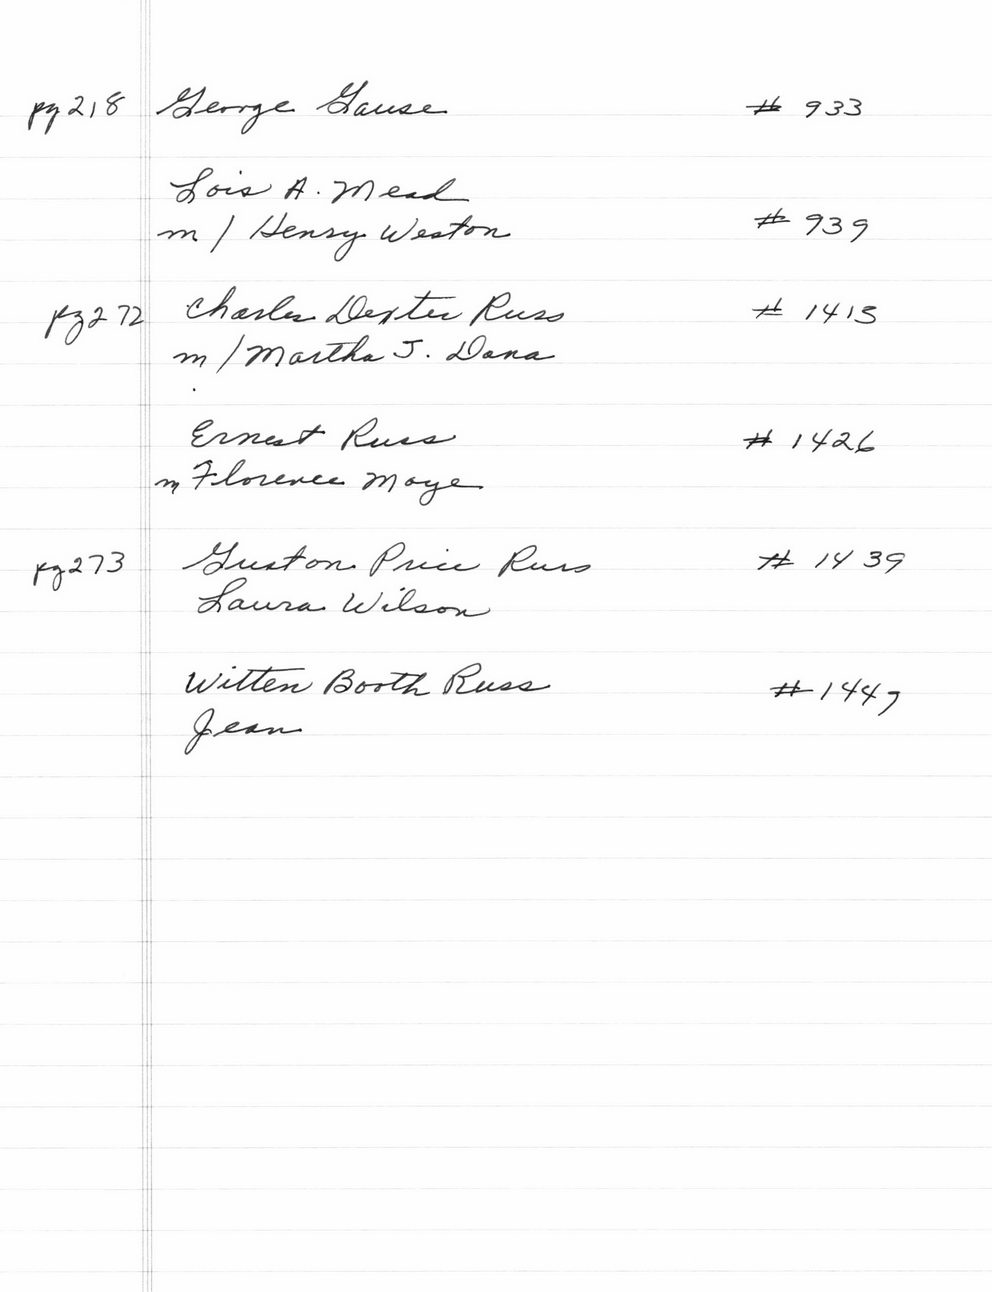 pg 218 George Gause # 933
Lois A. Mead
m / Henry Weston # 939
pg 272 Charles Dexter Russ # 1415
m / Martha J. Dana
Ernest Russ # 1426
m Florence Moye
pg 273 Guston Price Russ # 1439
Laura Wilson
Witten Booth Russ # 1447
Jean